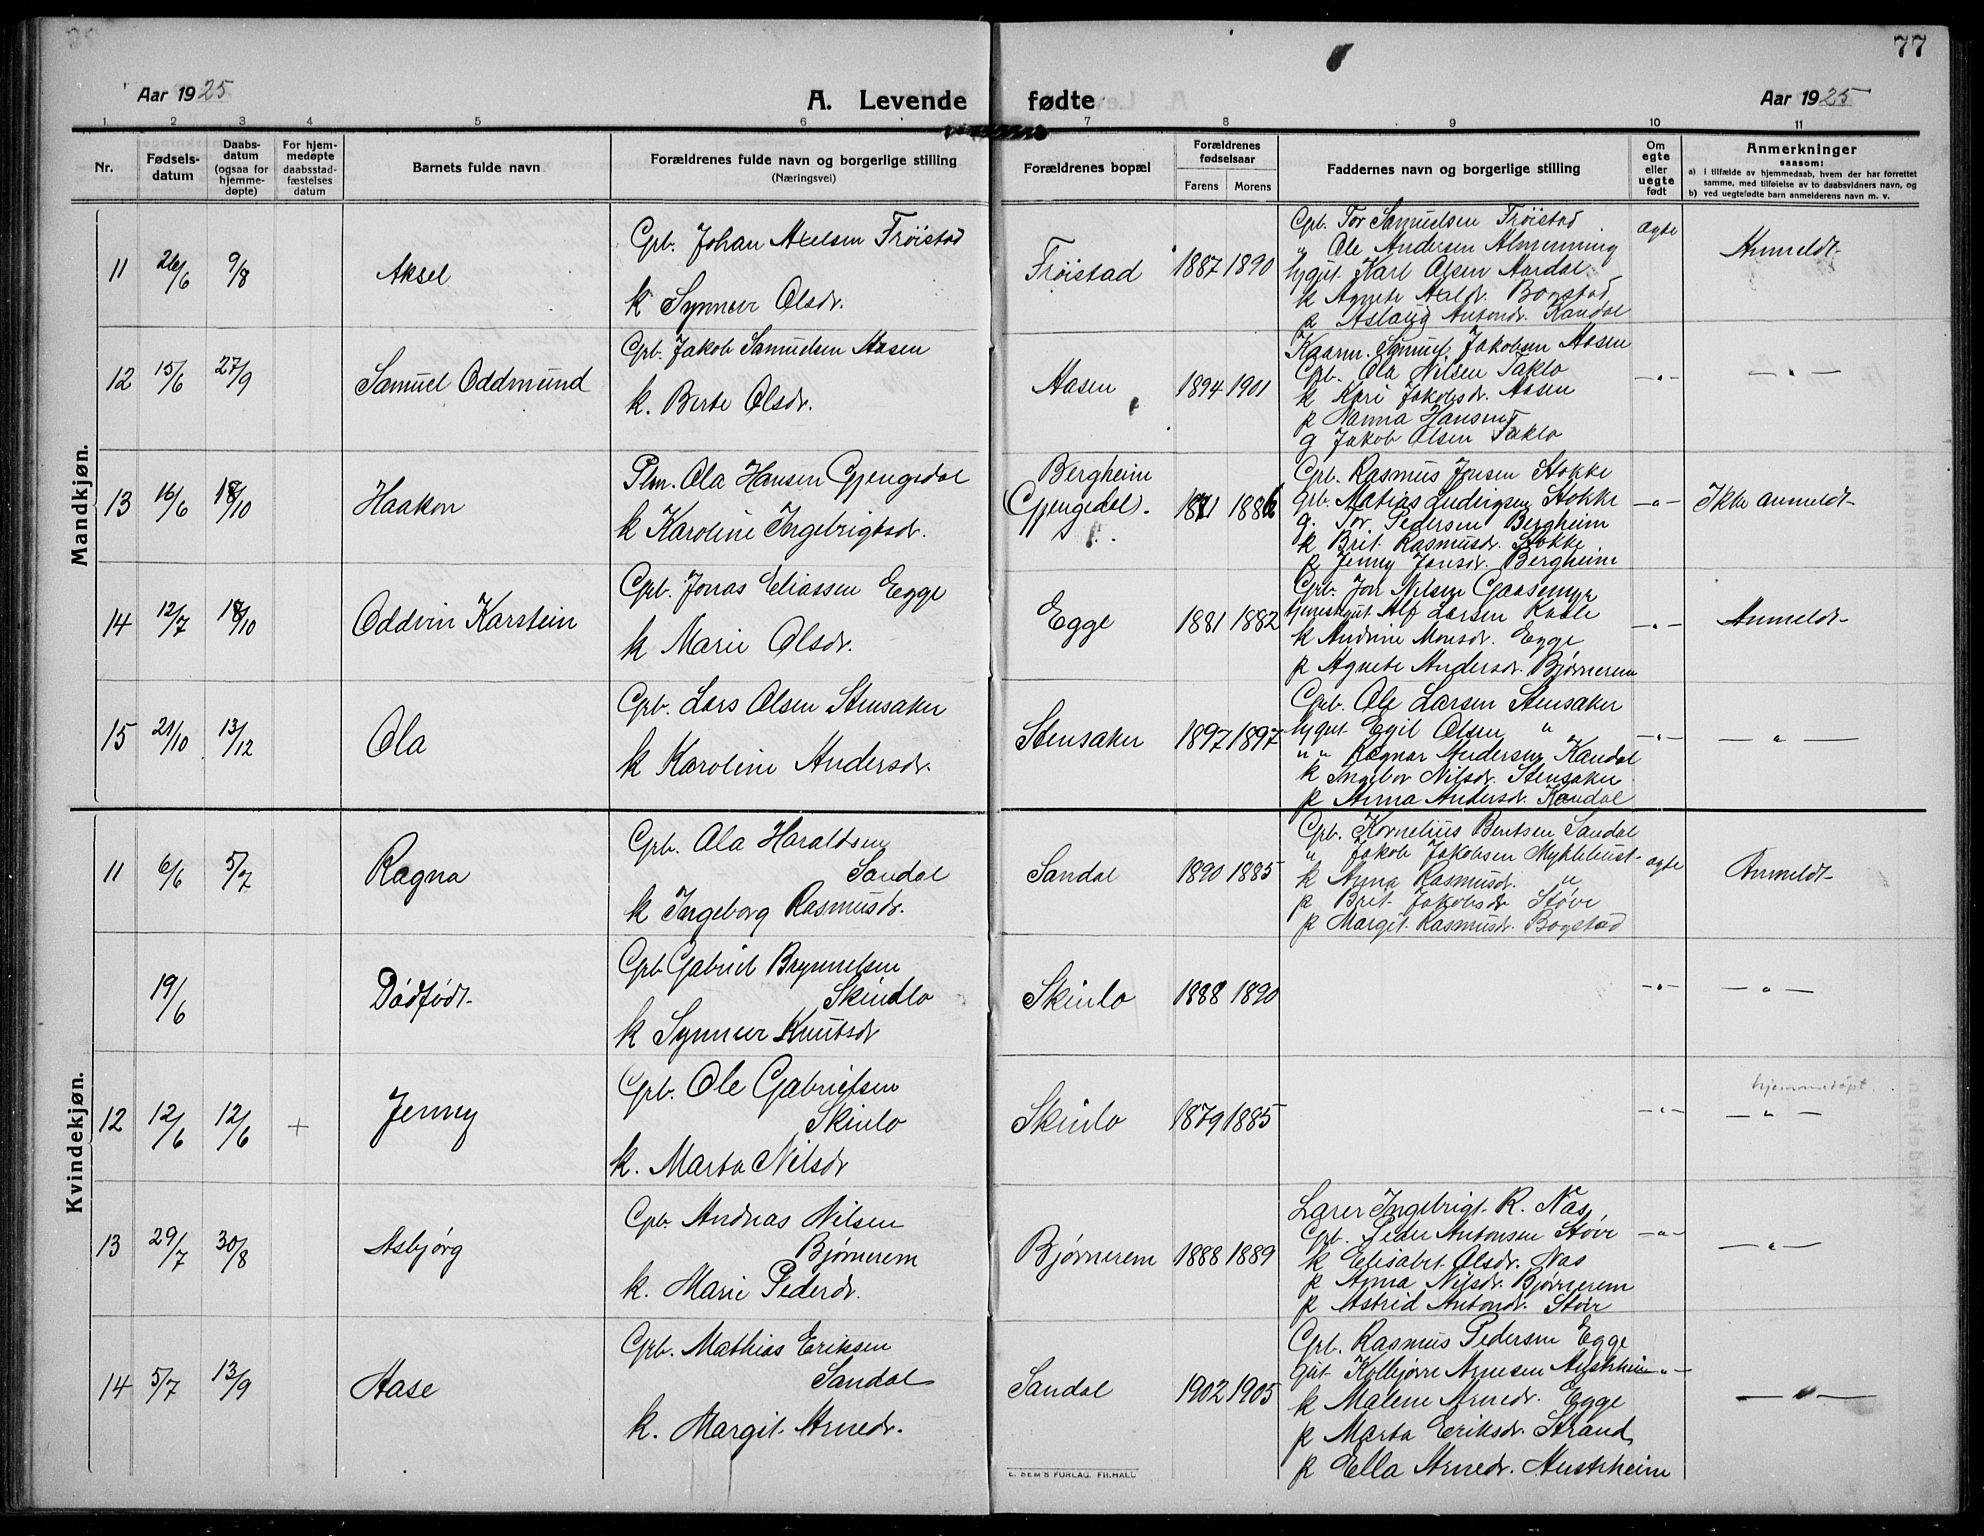 77
Aar 1925
A. Levende fødte
Aar 1925
1 2 3 4 5 6 7 8 9 10 11
Nr.
Fødsels-
datum
Daabs-
datum
(ogsaa for
hjemme-
døpte)
For hjem-
medøpte
daabsstad-
fæstelses
datum
Barnets fulde navn
Forældrenes fulde navn og borgerlige stilling
(Næringsvei)
Forældrenes bopæl
Forældrenes
fødselsaar
Farens Morens
Faddernes navn og borgerlige stilling
Om
egte
eller
uegte
født
Anmerkninger
saasom:
a) i tilfælde av hjemmedaab, hvem der har forrettet
samme, med tilføielse av to daabsvidners navn, og
b) ved uegtefødte barn anmelderens navn m. v.
Mandkjøn.
11 26/6 9/8 Aksel
Grb. Johan Axelsen Frøistad
k Synneur Olsdr.
Frøistad 1887 1890
Grb. Tor Samuelsen Frøistad
" Ole Andersen Almenning
Karl Olsen Aardal
k Agnete Axeldr. Bogstad
p Aslaug Antondr. Kandal
ægte
Anmeldt
12 15/6 27/9 Samuel Oddmund
Grb. Jakob Samuelsen Aasen
k. Berte Olsdr.
Aasen 1894 1901
Kaarm. Samuel Jakobsen Aasen
Grb. Ola Nilsen Taklo
k Kari Jakobsdr. Aasen
p Nanna Hansen
g Jakob Olsen Taklo
— " —
— " —
13 16/6 18/10 Haakon
Plm. Ola Hansen Gjengedal
k Karoline Ingebrigtsdr.
Bergheim
(Gjengedal). 1871 1886
Grb. Rasmus Jonsen Stokke
Grb. Matias Ludvigsen Stokke
g. Tor Pedersen Bergheim
k Brit Rasmusdr. Stokke
p Jenny Jonsdr. Bergheim
— " —
Ikke anmeldt
14 12/7 18/10 Oddvin Karstein
Grb. Jonas Eliassen Egge
k Marie Olsdr.
Egge 1881 1882
Grb. Jon Nilsen Gaasemyr
tjenestgut Alf Larsen
k Andrine Monsdr. Egge
p Agnete Andersdr. Bjørnerem
— " —
Anmeldt
15 21/10 13/12 Ola
Grb. Lars Olsen Stensaker
k Karoline Andersdr.
Stensaker 1897 1897
Grb. Ole Larsen Stensaker
Egil Olsen "
" " Ragnar Andersen Kandal
k Ingebor Nilsdr. Stensaker
p Anna Andersdr. Kandal
— " —
— " —
Kvindekjøn.
11 6/6 5/7 Ragna
Grb. Ola Haraldsen
Sandal
k Ingeborg Rasmusdr.
Sandal 1890 1885
Grb. Kornelius Bentsen Sandal
" Jakob Jakobsen Myklebust
k Anna Rasmusdr. "
p Brit Jakobsdr Støve
p Margit Rasmusdr. Bogstad
ægte
Anmeldt
19/6 Dødfødt
Grb Gabriel Brynnelsen
Skindlo
k Synneur Knutsdr
Skinlo 1888 1890
— " —
— " —
12 12/6 12/6 + Jenny
Grb. Ole Gabrielsen
Skinlo
k. Marta Nilsdr
Skinlo 1879 1885
— " —
hjemmedøpt.
— " —
13 29/7 30/8 Asbjørg
Grb Andreas Nilsen
Bjørnerem
k. Marie Pederdr.
Bjørnerem 1888 1889
Lærer Ingebrigt R. Nas
Grb. Peder Antonsen Støve
k Elisabet Olsdr. Nas
p Anna Nilsdr. Bjørnerem
p Astrid Antondr. Støve
— " —
— " —
14 5/7 13/9 Aase
Grb. Mathias Eriksen
Sandal
k. Margit Arnedr.
Sandal 1902 1905
Grb. Rasmus Pedersen Egge
Gut Kolbjørn Arnesen Austrheim
k Malene Arnedr. Egge
p Marta Eriksdr. Strand
p Ella Arnedr. Austrheim
— " —
— " —
E. SEM'S FORLAG, FR.HALD